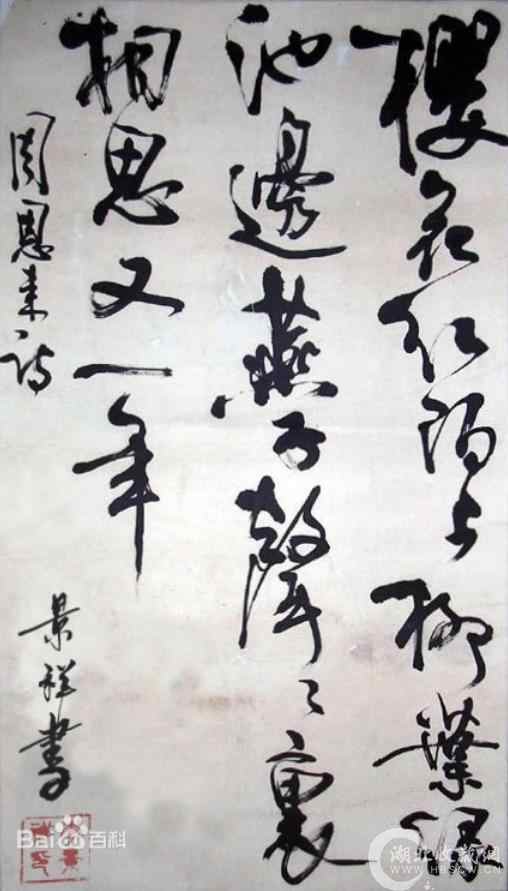 櫻花红陌上柳葉绿
池邊燕子聲々裏
相思又一年
周恩来诗
景祥書
Baidu百科
湖北收藏网
WWW.HBSCW.CN